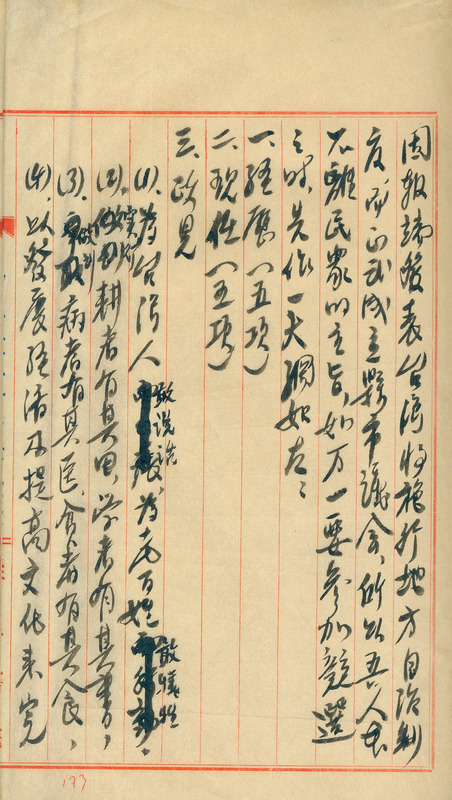 因報端發表台灣將施行地方自治制
度而正式成立縣市議會，所以吾人本
不離民眾的主旨，如万一要參加競選
之時，先作一大綱如左：
一、經歷（一五項）
二、現任（一五項）
三、政見
(1)、為台灣人敢說話，為老百姓敢犧牲。
(2)、實行耕者有其田，学者有其書，
(3)、做到病者有其医，食者有其食，
(4)、以發展經濟及提高文化来完
173